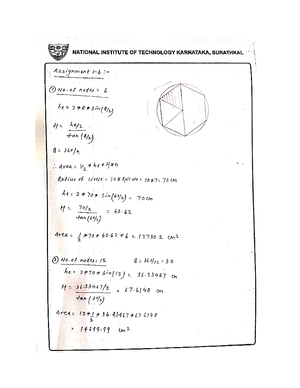 NATIONAL INSTITUTE OF TECHNOLOGY KARNATAKA, SURATHKAL
Assignment 1-b :-
① No. of nodes = 6
he = 2*R*sin(θ/2)
H = he/2 / tan(θ/2)
θ = 360/n
∴ Area = 1/2 * he * H * n
Radius of circle = 10 * 7 = 70 cm
he = 2 * 70 * sin(60/2) = 70 cm
H = 70/2 / tan(60/2) = 60.62
Area = 1/2 * 70 * 60.62 * 6 = 12730.2 cm²
② No. of nodes = 12 θ = 360/12 = 30
he = 2*70*sin(15) = 36.23467 cm
H = 36.23467/2 / tan(30/2) = 67.6148 cm
Area = 12 * 1/2 * 36.23467 * 67.6148
= 14699.99 cm²